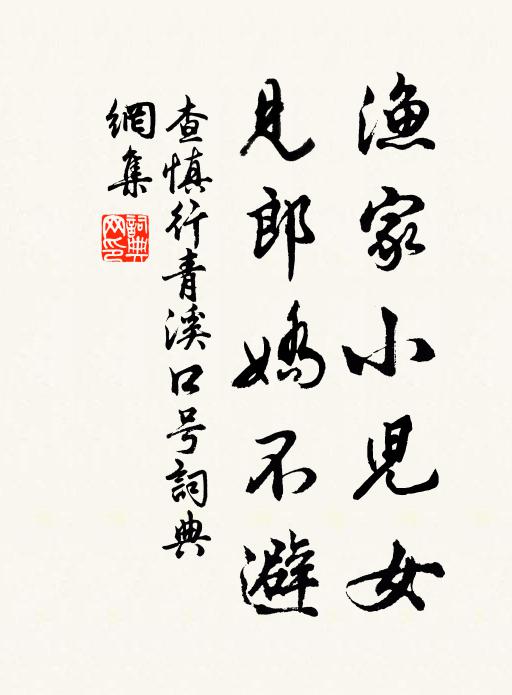 漁家小兒女
見郎嬌不避
查慎行青溪口号詞典
網集
詞典
网印